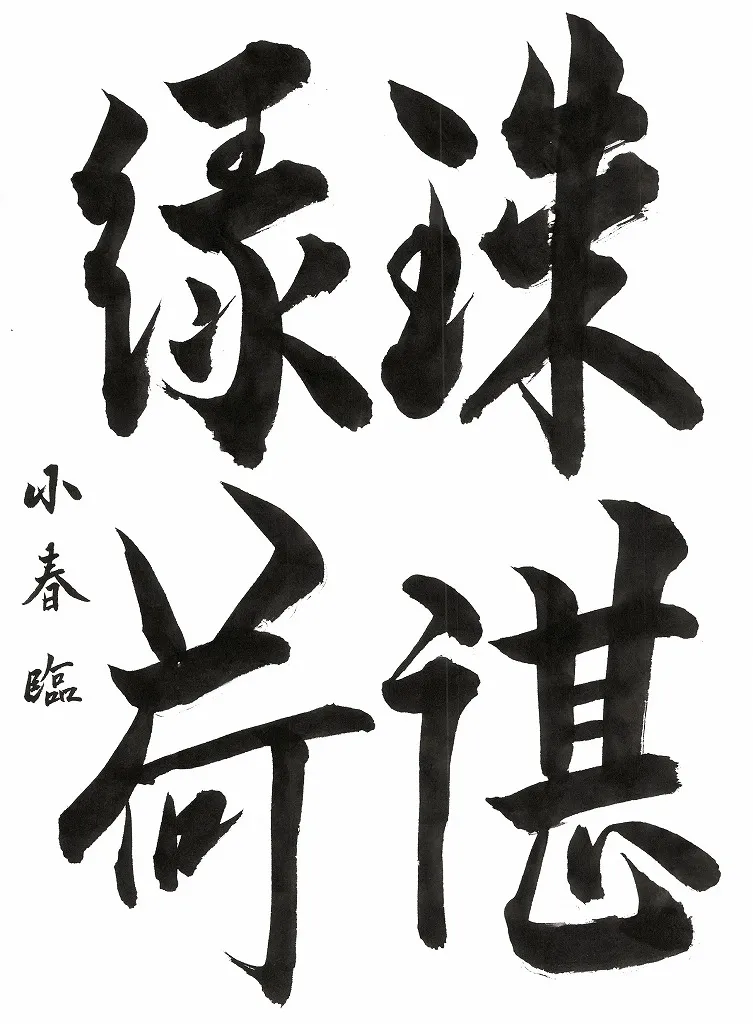 珠
緑荷
小春臨